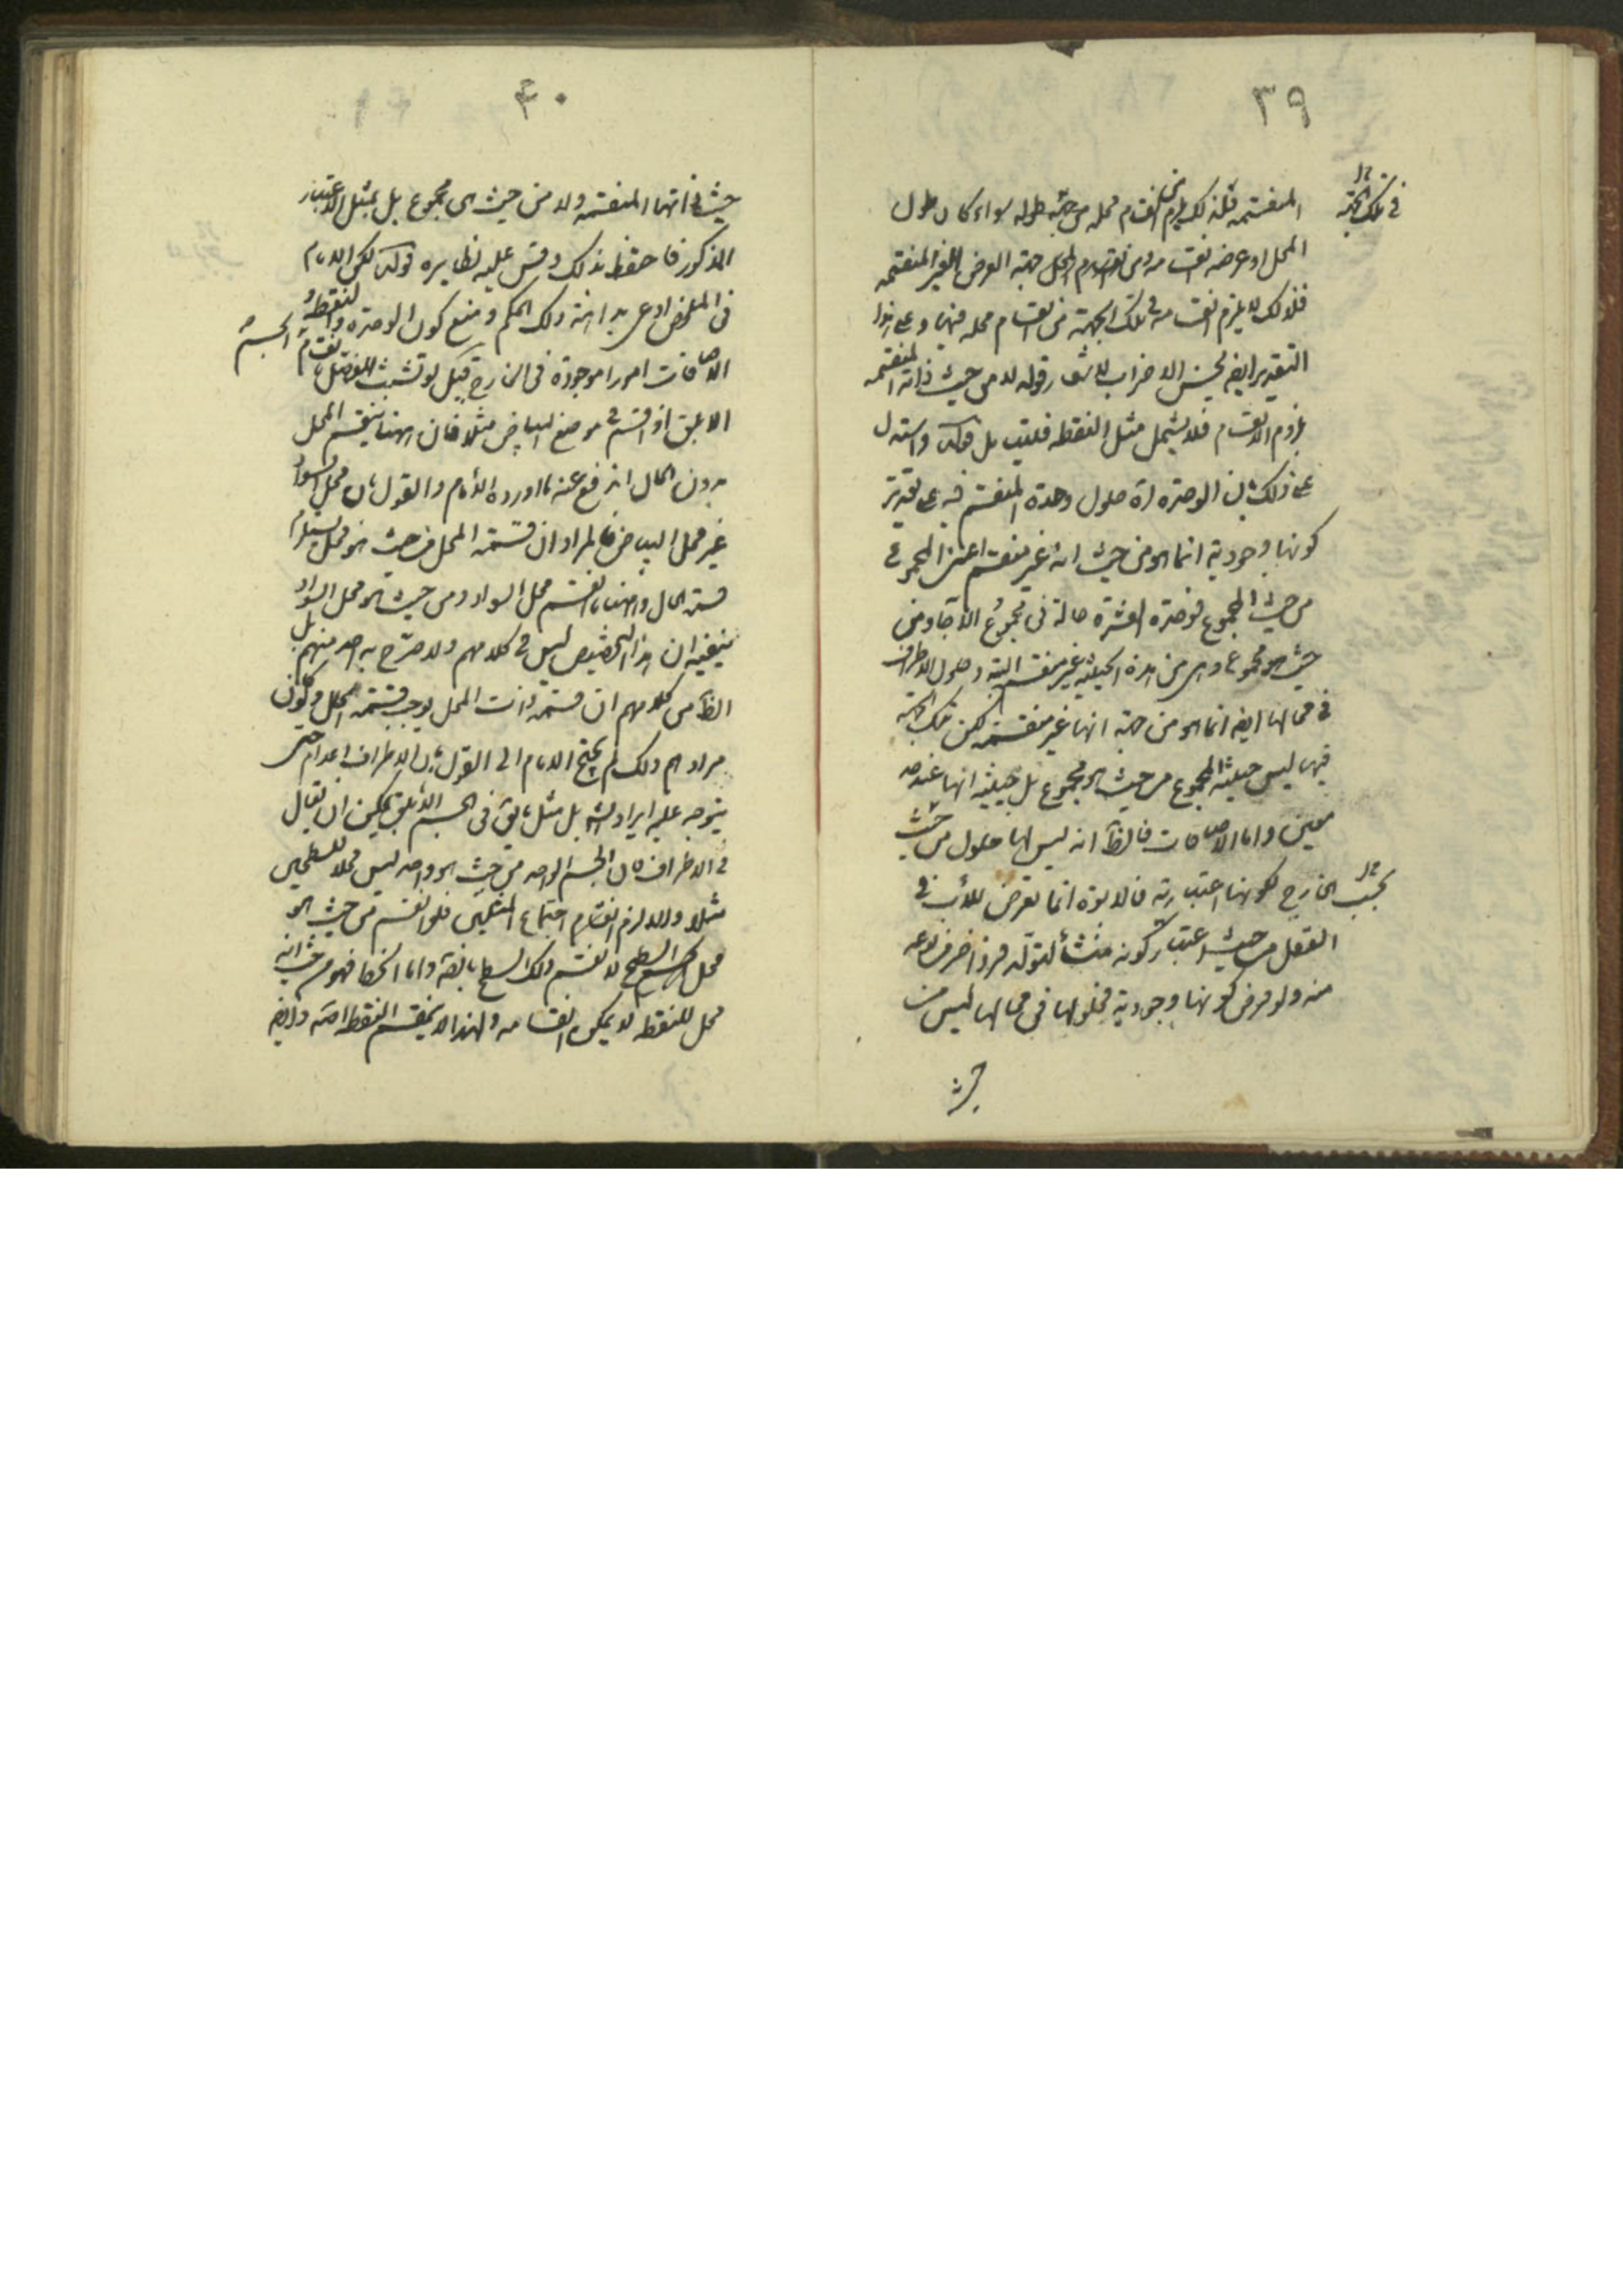 ٣٩
في تلك الجهة
المنقسمة فلذلك يلزم انقسام محله من جهة طوله سواء كان طول
المحل او عرضه انقسامه ومن المحل جهة العرض الغير المنقسمة
فلذلك لا يلزم انقسامه في تلك الجهة من انقسام محله فيها وعلى هذا
التقدير ايضا يحسن الاضراب للاشارة وقوله لا من حيث ذاته المنقسمة
يلزم الانقسام فلا يشمل مثل النقطة فليتأمل قوله واستدل
على ذلك بان الوحدة اه حلول وحدة المنقسم فيه على تقدير
كونها وجودية انما هو من حيث انه غير منقسم اعنى المجموع
من حيث المجموع فوحدة العشرة حالة في مجموع الآحاد من
حيث هو مجموع وهى من هذه الحيثية غير منقسم البتة وحلول الاطراف
في محالها ايضا انما هو من جهة انها غير منقسمة لكن تلك الجهة
فيها ليس حيثية المجموع من حيث هو مجموع بل حيثية انها عند حد
معين واما الاضافات فالظ انه ليس لها حلول من حيث
بحسب الخارج لكونها اعتبارية فالابوة انما تعرض للأب في
العقل من حيث اعتبار كونه منشأ لتولد فرد آخر من نوعه
منه ولو فرض كونها وجودية فحلولها في محالها ليس من
حيث
٤٠
حيث ذاتها المنقسمة ولا من حيث هى مجموع بل بمثل الاعتبار
المذكور فاحفظ ذلك وقس عليه نظايره قوله لكن الامام
في الملخص ادعى بداهة ذلك الحكم ومنع كون الوحدة والنقطة و
الاضافات امورا موجودة في الخارج قيل لو تشبث المفصل بانقسام الجسم
الابلق اذ اقسم في موضع البياض مثلا فان ههنا ينقسم المحل
بدون الحال اندفع عنه ما اورده الامام والقول بان محل السواد
غير محل البياض فالمراد ان قسمة المحل من حيث هو محل يستلزم
قسمة الحال وههنا ما انقسم محل السواد ومن حيث هو محل السواد
ينفيه ان هذا التخصيص ليس في كلامهم ولا صرح به احد منهم بل
الظ من كلامهم ان قسمة ذات المحل يوجب قسمة المحل ولو كان
مرادهم ذلك لم يحتج الامام الى القول بان الاطراف اعدام حتى
يتوجه عليه ايراد الش بل مثل ما يق في الجسم الابلق يمكن ان يقال
في الاطراف فان الجسم الواحد من حيث هو واحد ليس محلا للسطحين
مثلا والا لزم انقسام اجتماع المثلين فلو انقسم من حيث هو
محل السطح لا نقسم ذلك السطح بالضرورة واما الخط فهو من حيث انه
محل للنقطة لا يمكن انقسامه ولهذا لا ينقسم النقطة اصلا وايضا